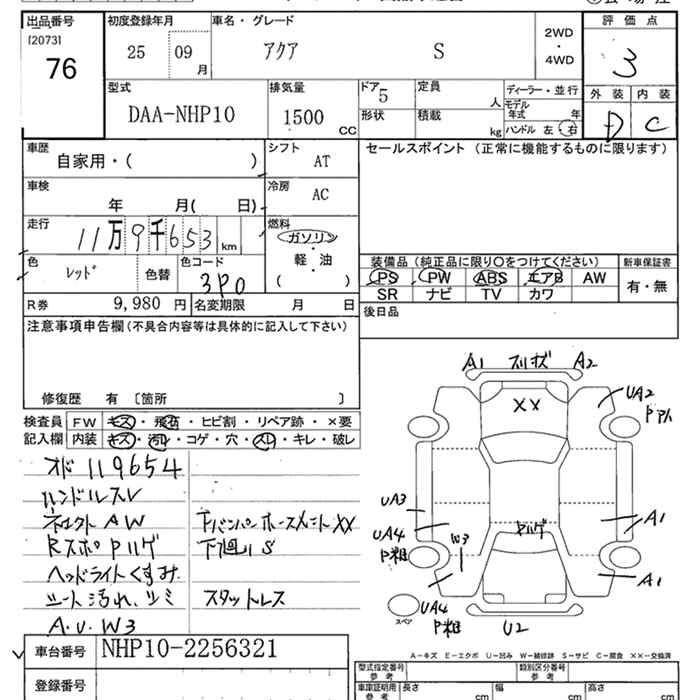 出品番号 初度登録年月 車名・グレード 評価点
[2073]
76 25 09月 アクア S 2WD・4WD 3
外装 内装
D C
型式 排気量 ドア 定員 ディーラー・並行
DAA-NHP10 1500 CC 5 人 モデル年式 年
形状 積載 kg ハンドル 左・右
車歴 シフト セールスポイント (正常に機能するものに限ります)
自家用・( ) AT
車検 冷房
年 月( 日) AC
走行 燃料
11万9千653 km ガソリン
軽・油
( )
色 色替 色コード
レッド 3P0
装備品 (純正品に限り○をつけてください) 新車保証書
PS PW ABS エアB AW 有・無
SR ナビ TV カワ
R券 9,980 円 名変期限 月 日
後日品
注意事項申告欄 (不具合内容等は具体的に記入して下さい)
修復歴 有 〔箇所 〕
検査員 FW キズ・飛石・ヒビ割・リペア跡・×要
記入欄 内装 キズ・汚れ・コゲ・穴・スレ・キレ・破レ
オド119654
ハンドルスレ
AW
Rスポ
ヘッドライトくすみ
シート汚れ、シミ
A.U.W3
XX
下廻りS
スタットレス
A1 A2
XX
UA2
UA3
UA4
W3
A1
A1
UA4
U2
スペア
A-キズ E-エクボ U-凹み W-補修跡 S-サビ C-腐食 XX-交換済
車台番号 NHP10-2256321
登録番号
型式指定番号 参考 類別区分番号 参考
車庫証明用 参考 長さ cm 幅 cm 高さ cm